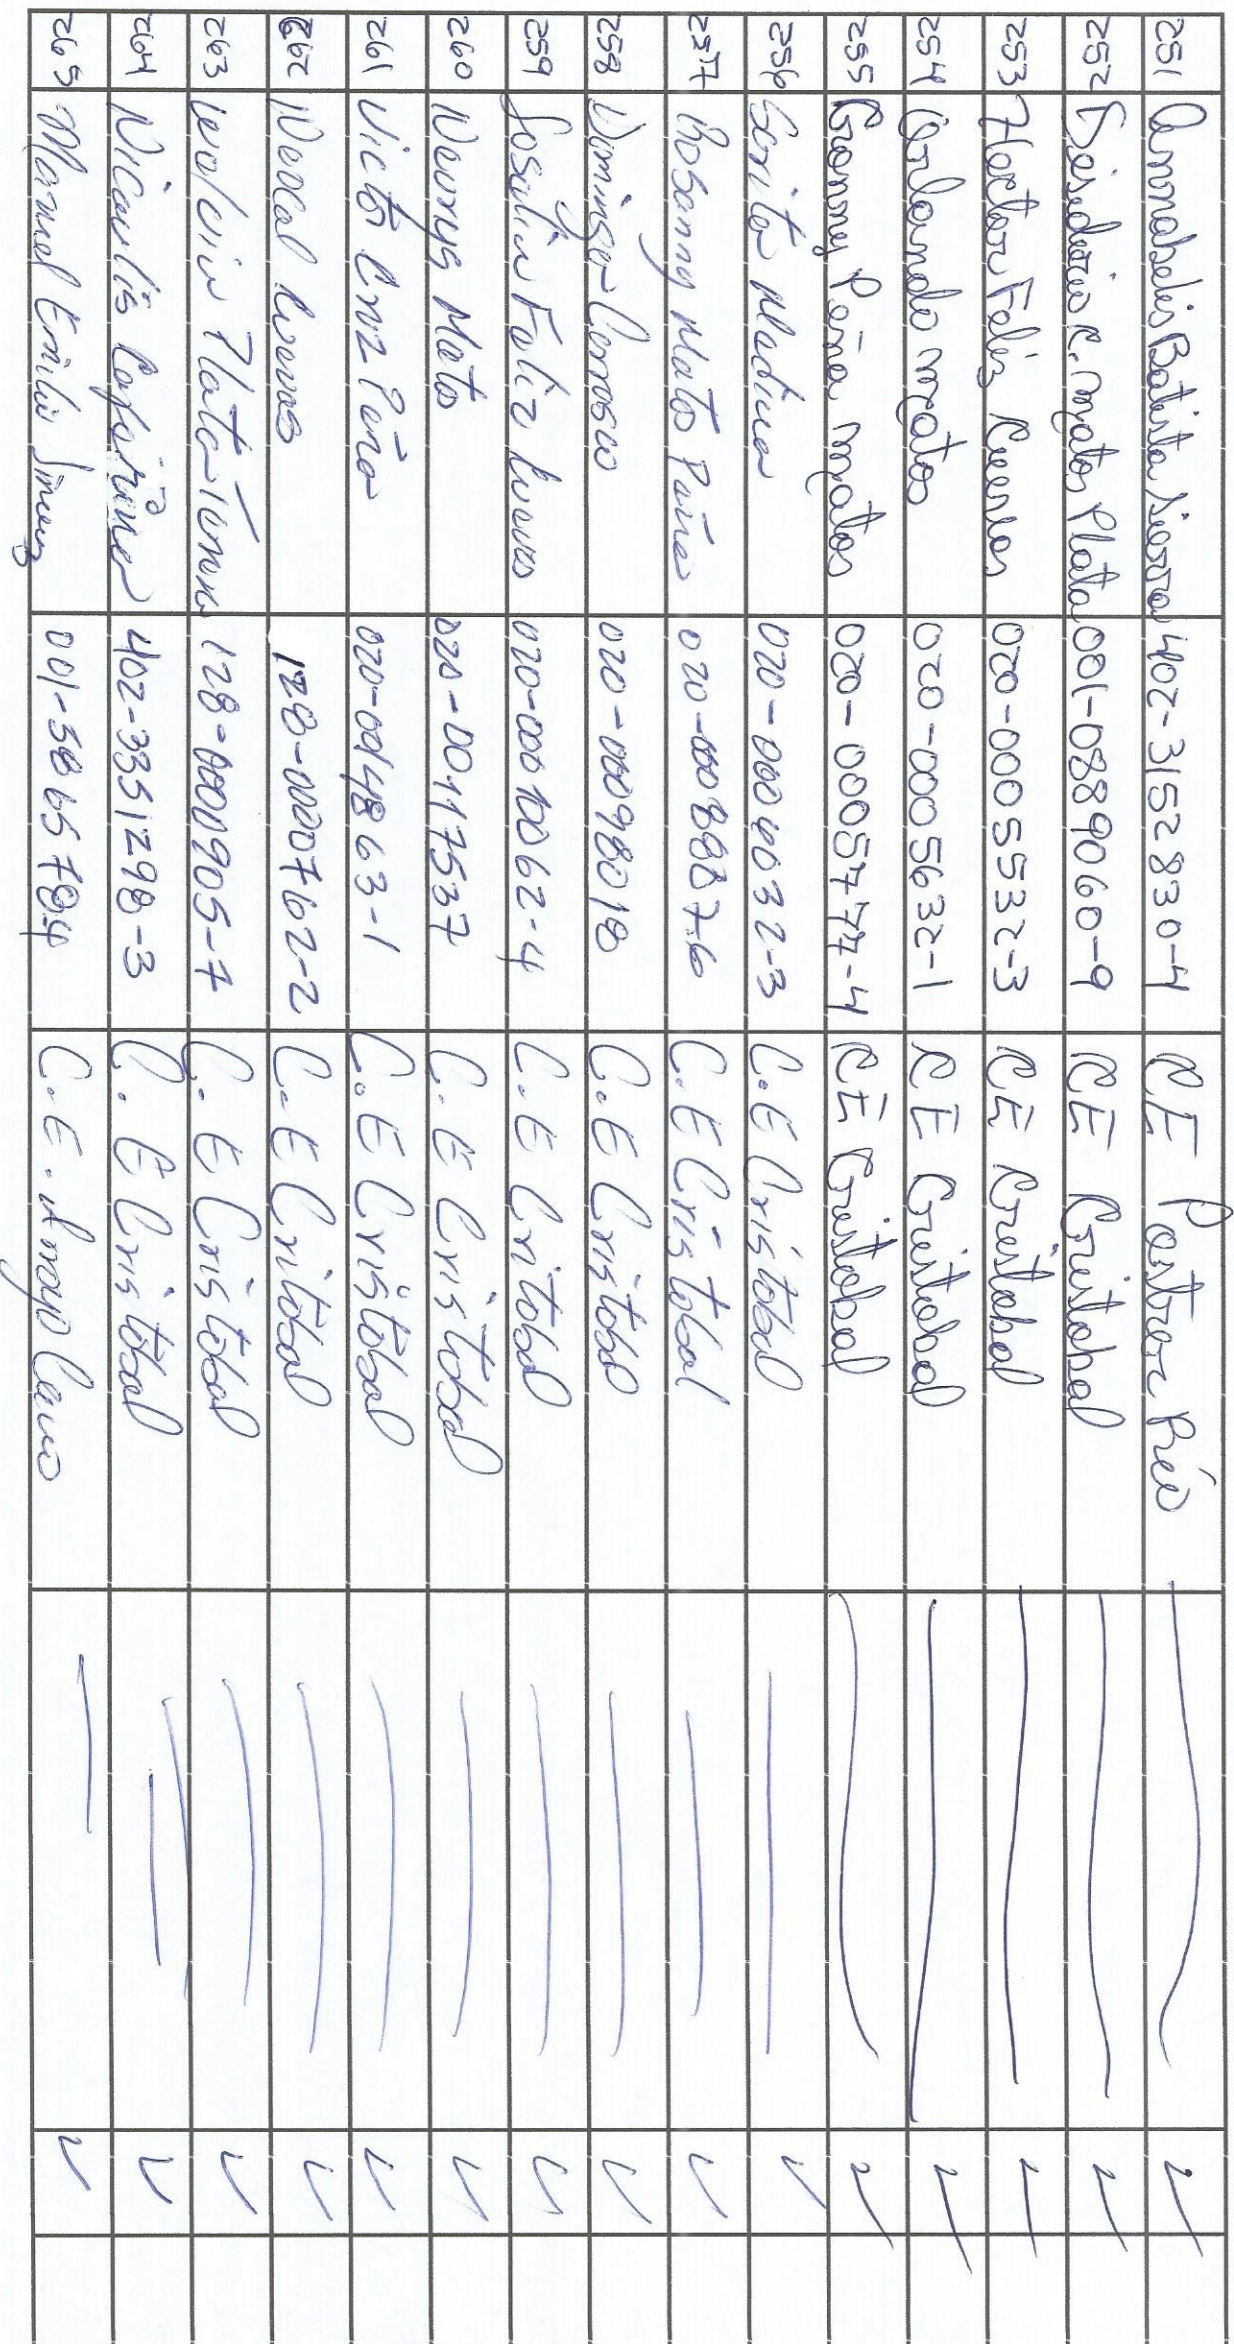 251 Annabelis Batista Sierra 402-3152830-4 C.E Postrer Río
252 Desiderio C. Matos Plata 001-0889060-9 CE Cristobal
253 Hector Feliz Cuevas 020-0005532-3 CE Cristobal
254 Orlando Matos 020-0005632-1 CE Cristobal
255 Peña Matos 020-0005777-4 CE Cristobal
256 Medina 020-0004032-3 C.E Cristobal
257 Rosanny Matos Peña 020-0008887-6 C.E Cristobal
258 Domingo Carrasco 020-00098018 C.E Cristobal
259 Feliz Cuevas 020-0010062-4 C.E Critobal
260 Matos 020-00117537 C.E Cristobal
261 Victor Cruz Peña 020-0014863-1 C.E Cristobal
262 Cuevas 128-0000762-2 C.E Critobal
263 Plata 128-0000905-7 C.E Cristobal
264 402-3351298-3 C.E Cristobal
265 Manuel Emilio 001-3865784 C.E. Arroyo Cano